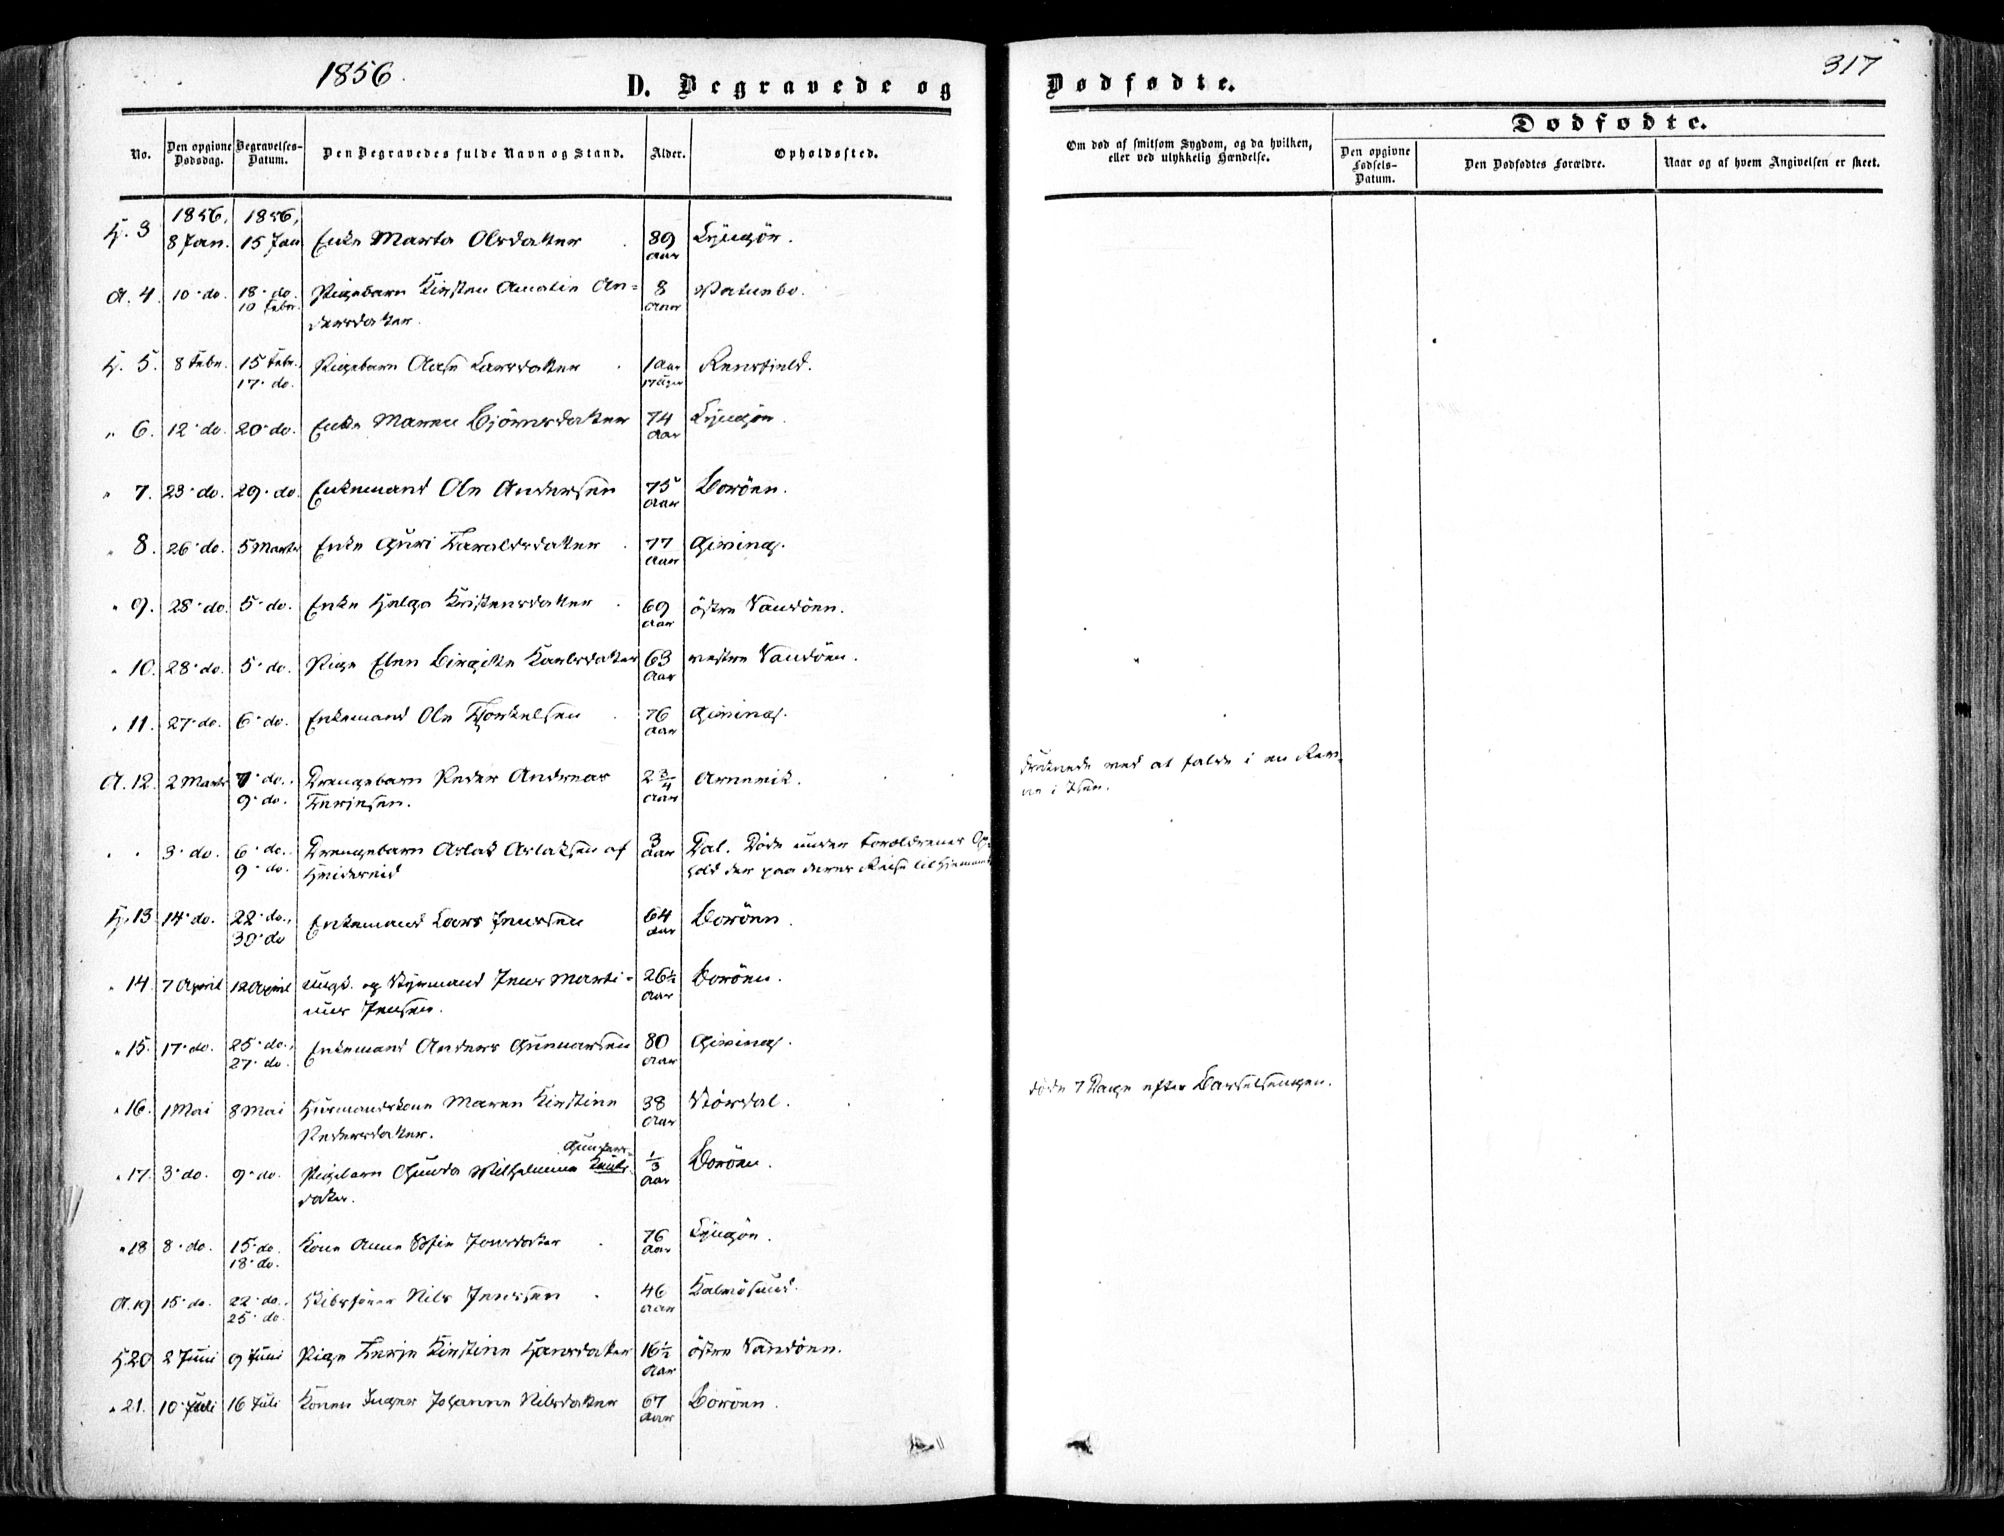 1856.
D. Begravede og
Dødfødte.
317
No.
Den opgivne Dødsdag.
Begravelses-Datum.
Den Begravedes fulde Navn og Stand.
Alder.
Opholdssted.
Om død af smitsom Sygdom, og da hvilken, eller ved ulykkelig Hændelse.
Dødfødte.
Den opgivne Fødsels-Datum.
Den Dødfødtes Forældre.
Naar og af hvem Angivelsen er skeet.
1856, 1856,
H. 3 8 Jan. 15 Jan Enke Marta Olsdatter 89 Aar Lyngör.
A. 4. 10. do. 18. do. 10 Febr. Pigebarn Kirsten Amalie An-
dersdatter. 8 Aar
H. 5. 8 Febr. 15 Febr. 17. do. Pigebarn Aase Larsdatter 1 Aar 17 Uger
" 6. 12. do. 20. do. Enke Maren Björnsdatter 74 Aar Lyngör.
" 7. 23. do. 29. do. Enkemand Ole Andersen 75 Aar Boröen.
" 8. 26. do. 5 Marts Enke Guri Haraldsdatter 77 Aar Giving.
" 9. 28. do. 5. do. Enke Helga Kristensdatter 69 Aar östre Sandöen.
" 10. 28. do. 5. do. Pige Elen Birgitte Karlsdatter 63 Aar vestre Sandöen.
" 11. 27. do. 6. do. Enkemand Ole Torkelsen 76 Aar Giving.
A. 12. 2 Marts 7. do., 9. do. Drengebarn Peder Andreas
Terjesen. 2 3/4 Aar Arnevik. Druknede ved at falde i en
i Isen.
" " 3. do. 6. do. 9. do. Drengebarn Aslak Aslaksen af
3 Aar Dal. Döde under Forældrenes Op-
hold der paa deres Reise til Hjemmet
H. 13 14. do. 22. do., 30. do Enkemand Lars Jensen 64 Aar Boröen.
" 14. 7 April 12 April Ungk. og Styrmand Jens Marti-
nus Jensen. 26 1/2 Aar Boröen.
" 15. 17. do. 25. do., 27. do. Enkemand Anders Gunnarsen 80 Aar Giving.
" 16. 1 Mai 8 Mai Huusmandskone Maren Kirstine
Pedersdatter. 38 Aar Stördal. döde 7 Dage efter Barselsengen.
" 17. 3. do. 9. do. Pigebarn Gunda Wilhelmine
datter. 1/3 Aar Boröen.
" 18 8. do. 15. do. 18. do. Kone Anne Sofie Jensdatter 76 Aar Lyngör.
A. 19 15. do. 22. do., 25. do. Skibsförer Nils Jenssen 46 Aar Kalvösund.
H. 20 2 Juni 9 Juni Pige Terje Kirstine Hansdatter 16 1/2 Aar östre Sandöen.
" 21. 10. Juli 16 Juli Konen Inger Johanne Nilsdatter 67 Aar Boröen.